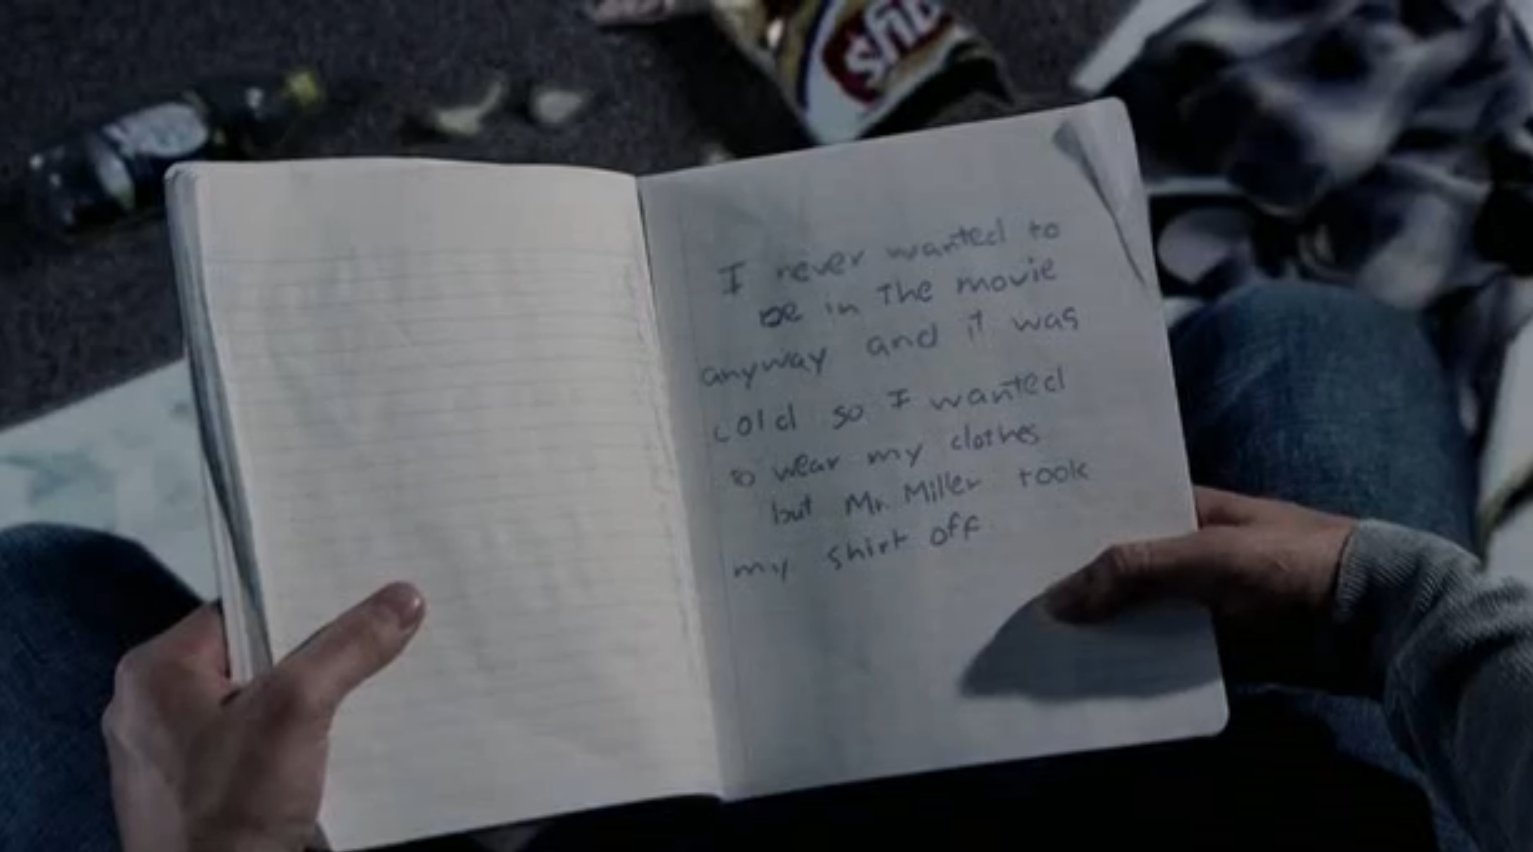 I never wanted to
be in the movie
anyway and it was
cold so I wanted
to wear my clothes
but Mr. Miller took
my shirt off